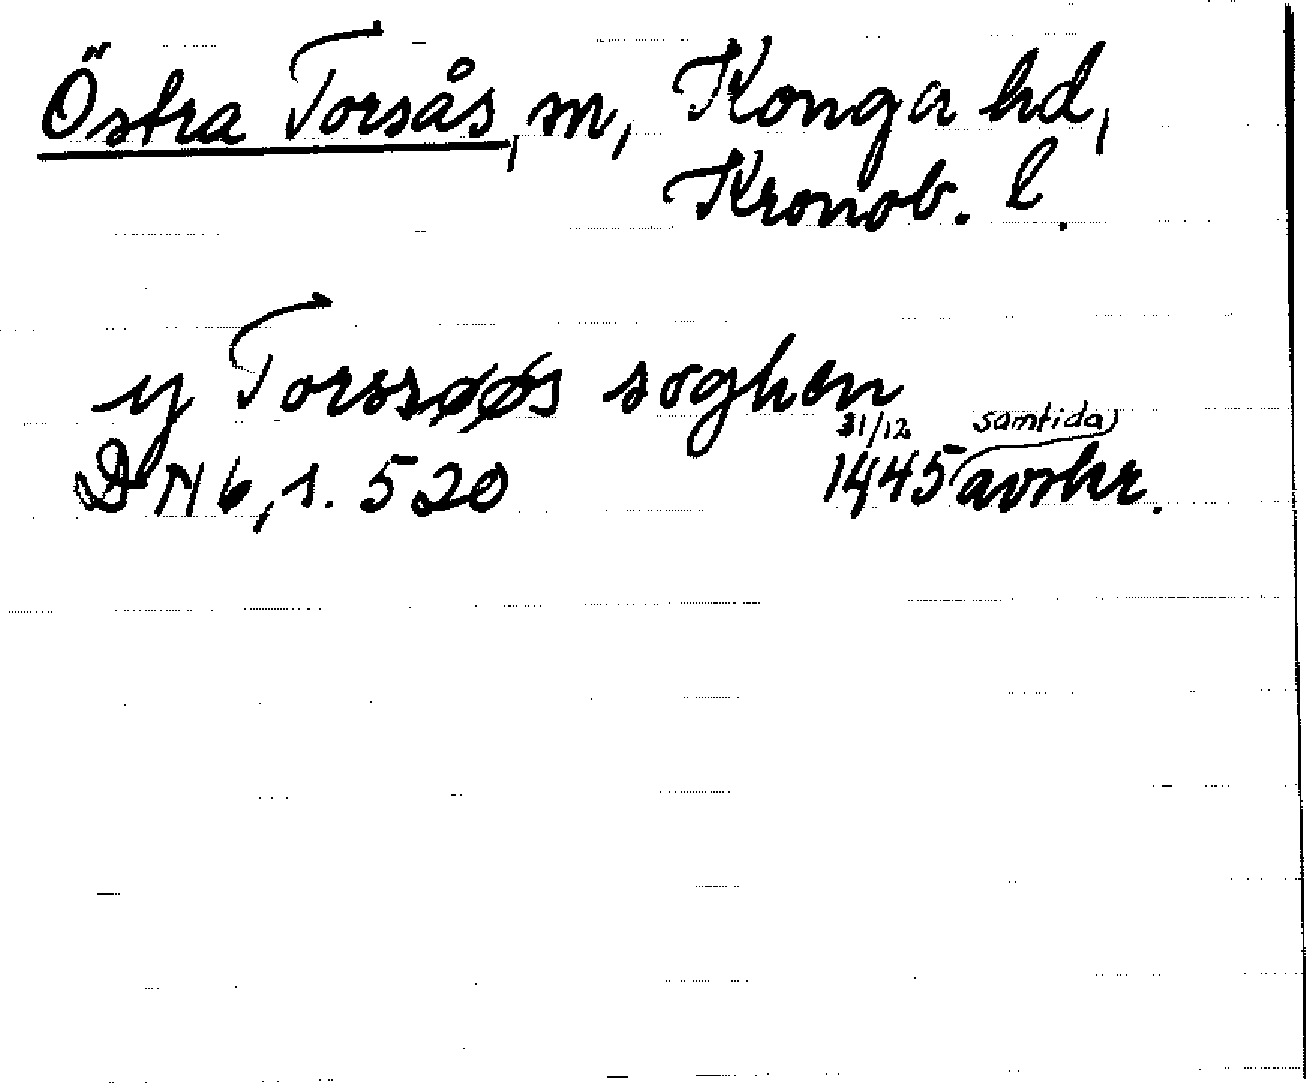 Östra Torsås, sn, Konga hd,
Kronob. l.
y Torssøøs soghen
DN 6, s. 520 31/12 1445 samtida avskr.